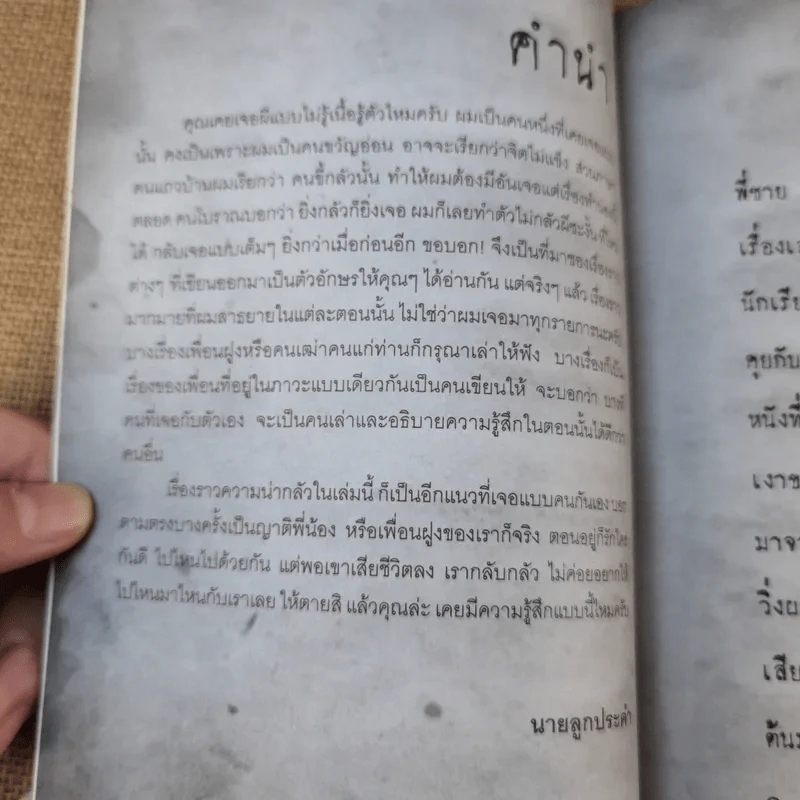 คำนำ
คุณเคยเจอผีแบบไม่รู้เนื้อรู้ตัวไหมครับ ผมเป็นคนหนึ่งที่เคยเจอแบบ
นั้น คงเป็นเพราะผมเป็นคนขวัญอ่อน อาจจะเรียกว่าจิตไม่แข็ง ส่วนภาษา
คนแถวบ้านผมเรียกว่า คนขี้กลัวนั้น ทำให้ผมต้องมีอันเจอแต่เรื่องทำนองนี้
ตลอด คนโบราณบอกว่า ยิ่งกลัวก็ยิ่งเจอ ผมก็เลยทำตัวไม่กลัวผีซะงั้น
ได้ กลับเจอแบบเต็มๆ ยิ่งกว่าเมื่อก่อนอีก ขอบอก! จึงเป็นที่มาของเรื่องราว
ต่างๆ ที่เขียนออกมาเป็นตัวอักษรให้คุณๆ ได้อ่านกัน แต่จริงๆ แล้ว เรื่องราว
มากมายที่ผมสาธยายในแต่ละตอนนั้น ไม่ใช่ว่าผมเจอมาทุกรายการนะครับ
บางเรื่องเพื่อนฝูงหรือคนเฒ่าคนแก่ท่านก็กรุณาเล่าให้ฟัง บางเรื่องก็เป็น
เรื่องของเพื่อนที่อยู่ในภาวะแบบเดียวกันเป็นคนเขียนให้ จะบอกว่า
คนที่เจอกับตัวเอง จะเป็นคนเล่าและอธิบายความรู้สึกในตอนนั้นได้ดีกว่า
คนอื่น
เรื่องราวความน่ากลัวในเล่มนี้ ก็เป็นอีกแนวที่เจอแบบคนกันเอง บอก
ตามตรงบางครั้งเป็นญาติพี่น้อง หรือเพื่อนฝูงของเราก็จริง ตอนอยู่ก็รักใคร่
กันดี ไปไหนไปด้วยกัน แต่พอเขาเสียชีวิตลง เรากลับกลัว ไม่ค่อยอยากให้
ไปไหนมาไหนกับเราเลย ให้ตายสิ แล้วคุณล่ะ เคยมีความรู้สึกแบบนี้ไหมครับ
นายลูกประคำ
พี่ชาย
เรื่องเ
นักเรีย
คุยกับ
หนังที่
เงาข
มาจา
วิ่งผ
เสีย
ต้นม